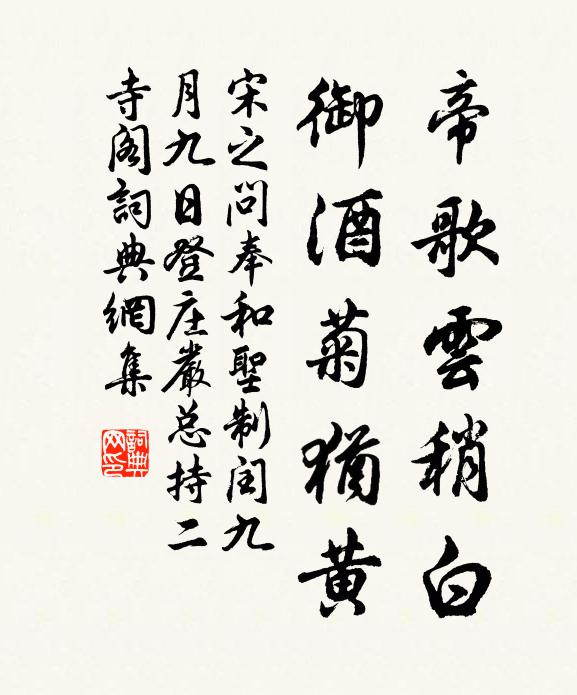 帝歌雲稍白
御酒菊猶黄
宋之问奉和聖制闰九
月九日登庄嚴总持二
寺阁詞典網集
詞典
网印